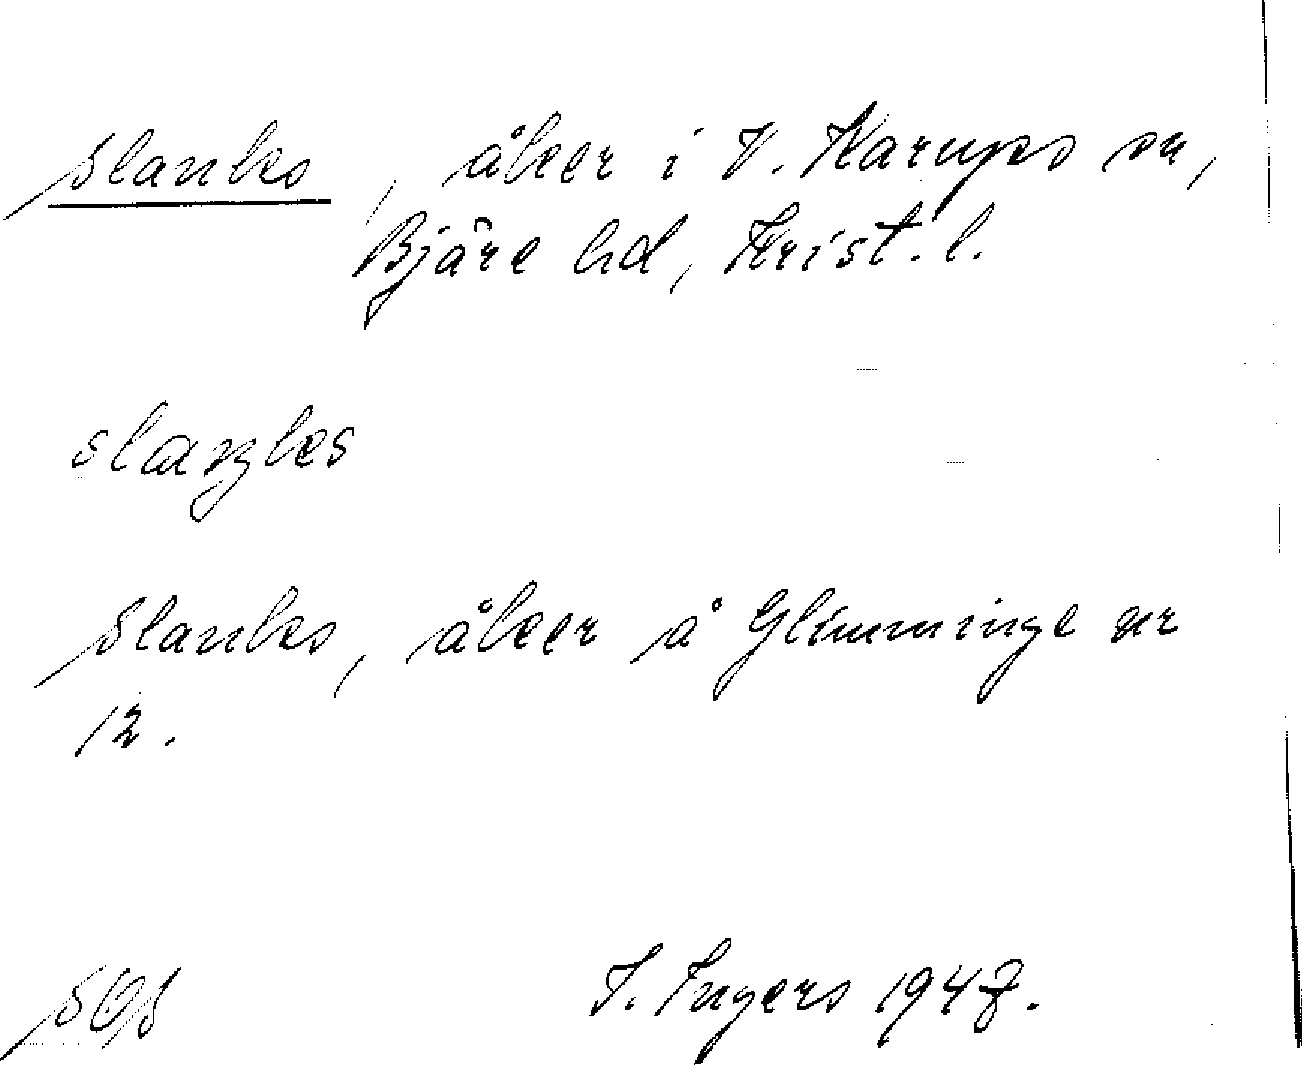 Slanks, åker i V. Karups sn,
Bjäre hd, Krist. l.
slaŋks
Slanks, åker å Glimminge nr
12.
SOS
I. Ingers 1947.